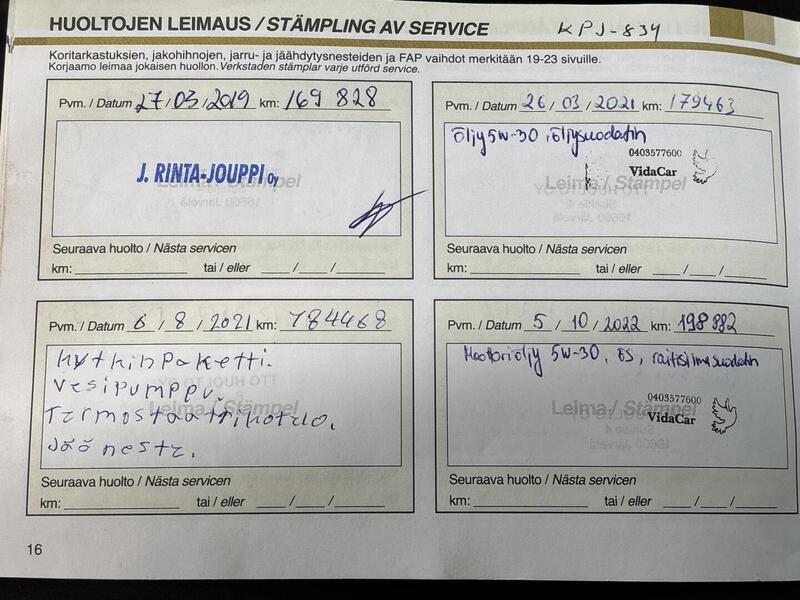 HUOLTOJEN LEIMAUS / STÄMPLING AV SERVICE KPJ-834
Koritarkastuksien, jakohihnojen, jarru- ja jäähdytysnesteiden ja FAP vaihdot merkitään 19-23 sivuille.
Korjaamo leimaa jokaisen huollon. Verkstaden stämplar varje utförd service.
Pvm. / Datum 27/03/2019 km: 169 828
J. RINTA-JOUPPI Oy
Leima / Stämpel
Seuraava huolto / Nästa servicen
km: tai / eller / /
Pvm. / Datum 26/03/2021 km: 179463
Öljy 5W-30, öljysuodatin
0403577600
VidaCar
Leima / Stämpel
Seuraava huolto / Nästa servicen
km: tai / eller / /
Pvm. / Datum 6/8/2021 km: 184468
Kytkinpaketti.
Vesipumppu.
Termostaattikotelo.
Jää neste.
Leima / Stämpel
Seuraava huolto / Nästa servicen
km: tai / eller / /
Pvm. / Datum 5/10/2022 km: 198882
Moottoriöljy 5W-30, ÖS, raitisilmasuodatin
0403577600
VidaCar
Leima / Stämpel
Seuraava huolto / Nästa servicen
km: tai / eller / /
16